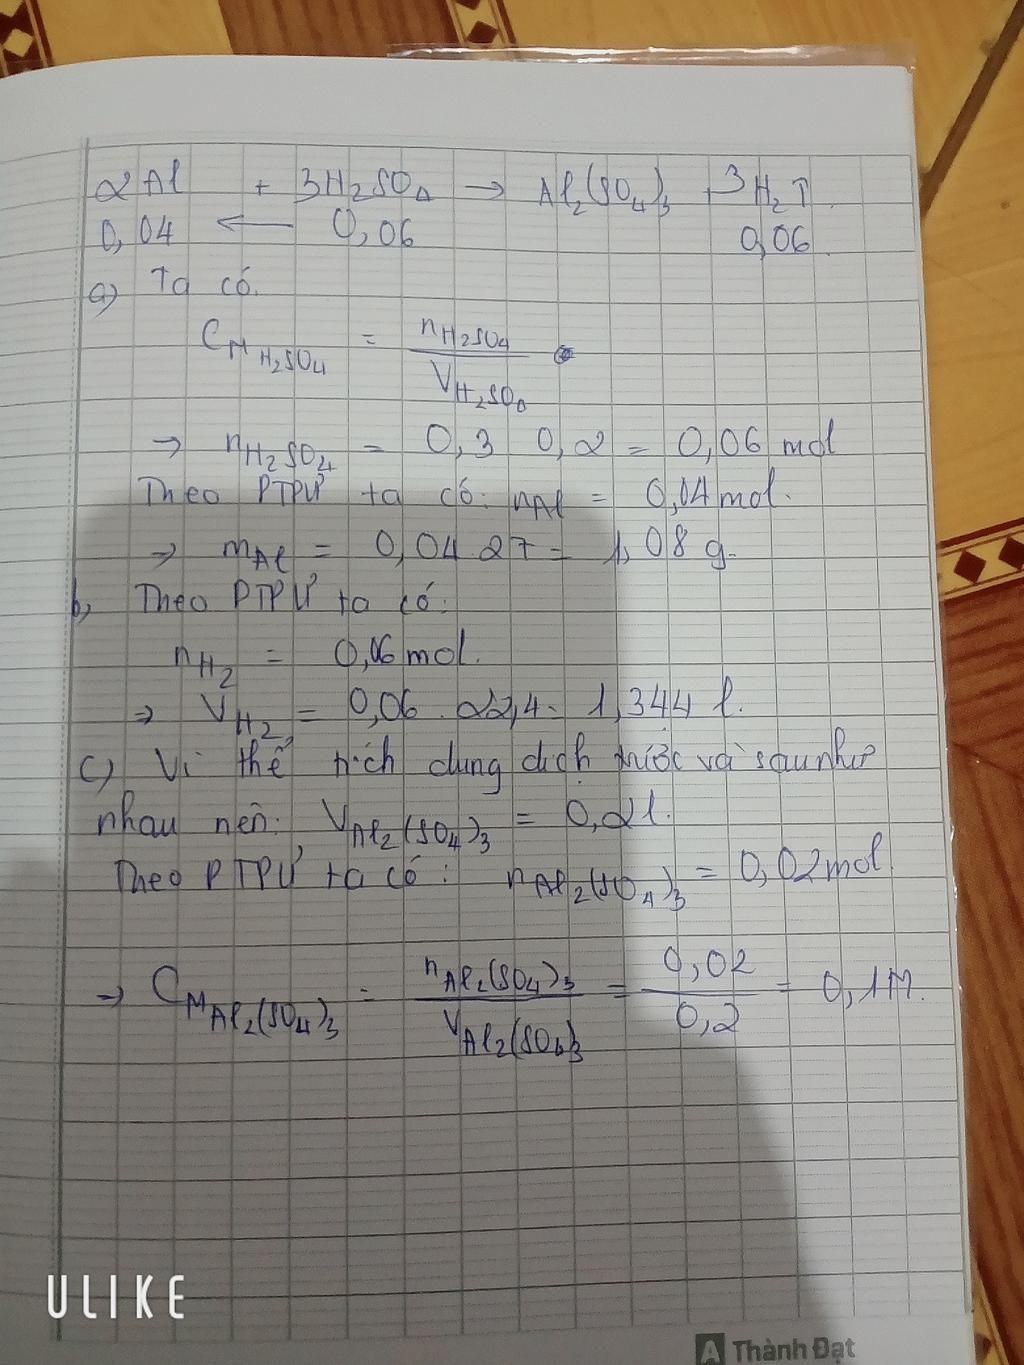 2Al + 3H₂SO₄ → Al₂(SO₄)₃ + 3H₂↑
0,04 ← 0,06 0,06
a) Ta có.
C_M H₂SO₄ = n H₂SO₄ / V H₂SO₄
→ n H₂SO₄ = 0,3 0,2 = 0,06 mol
Theo PTPƯ ta có: nAl = 0,04 mol.
→ mAl = 0,04 27 = 1,08 g.
b, Theo PTPƯ ta có:
nH₂ = 0,06 mol.
→ V H₂ = 0,06 . 22,4 = 1,344 l.
c) Vì thể tích dung dịch trước và sau như
nhau nên: V Al₂(SO₄)₃ = 0,2l.
Theo PTPƯ ta có: n Al₂(SO₄)₃ = 0,02 mol.
→ C_M Al₂(SO₄)₃ = n Al₂(SO₄)₃ / V Al₂(SO₄)₃ = 0,02 / 0,2 = 0,1M.
ULIKE
A Thành Đạt